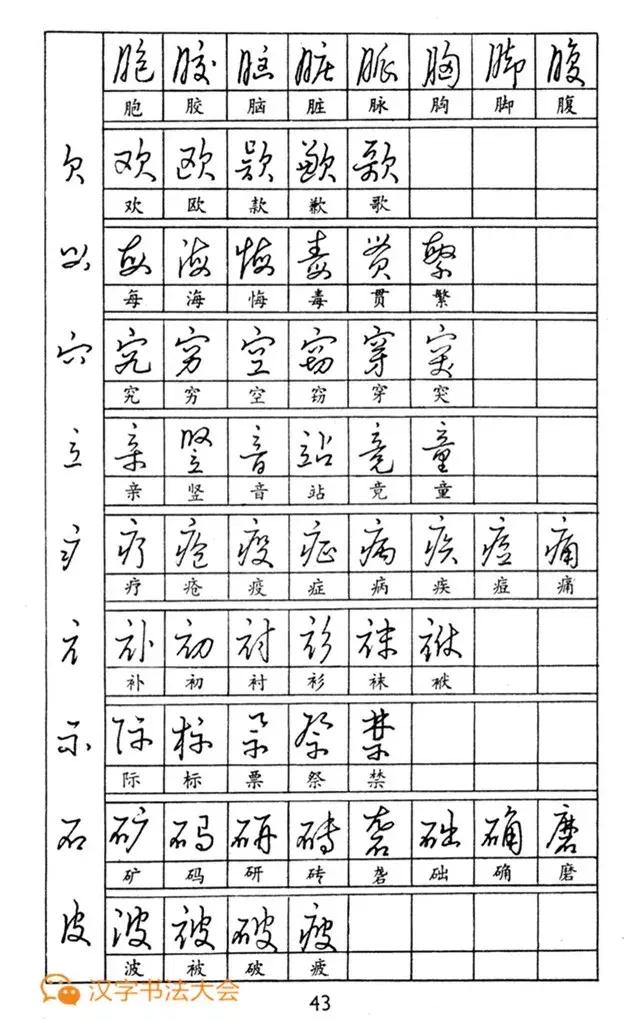 胞 胶 脑 脏 脉 胸 脚 腹
胞 胶 脑 脏 脉 胸 脚 腹
欠 欢 欧 款 歉 歌
欢 欧 款 歉 歌
母 每 海 悔 毒 贯 繁
每 海 悔 毒 贯 繁
穴 究 穷 空 窃 穿 突
究 穷 空 窃 穿 突
立 亲 竖 音 站 竞 童
亲 竖 音 站 竞 童
疒 疗 疮 疫 症 病 疾 痘 痛
疗 疮 疫 症 病 疾 痘 痛
衤 补 初 衬 衫 袜 袱
补 初 衬 衫 袜 袱
示 际 标 票 祭 禁
际 标 票 祭 禁
石 矿 码 研 砖 砻 础 确 磨
矿 码 研 砖 砻 础 确 磨
皮 波 被 破 疲
波 被 破 疲
汉字书法大会
43